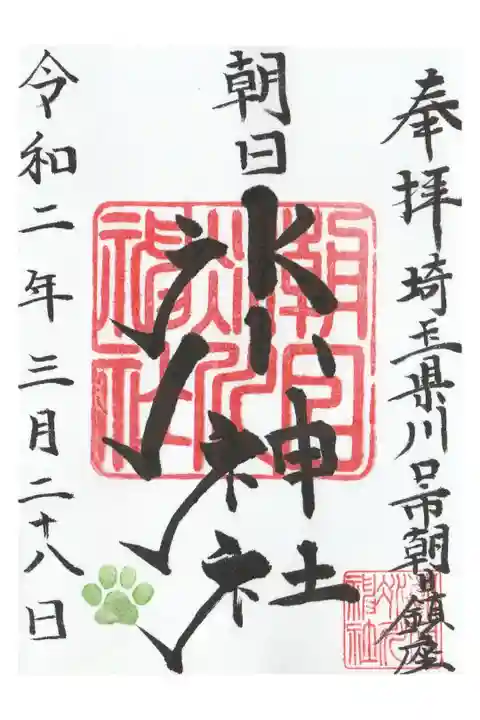 奉拝埼玉県川口市朝日鎮座
朝日
氷川神社
令和二年三月二十八日
朝日
氷川
神社